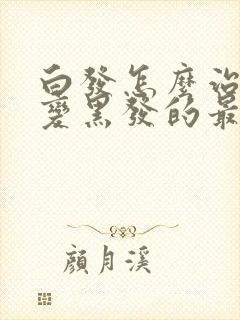 白發怎麼治
變黑發的最
顏月溪